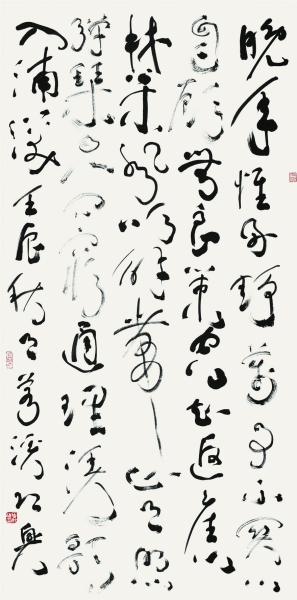 晚年惟好靜萬事不關心
自顧無長策空知返舊
林松風吹解帶山月照
彈琴君問窮通理漁歌
入浦深壬辰秋月